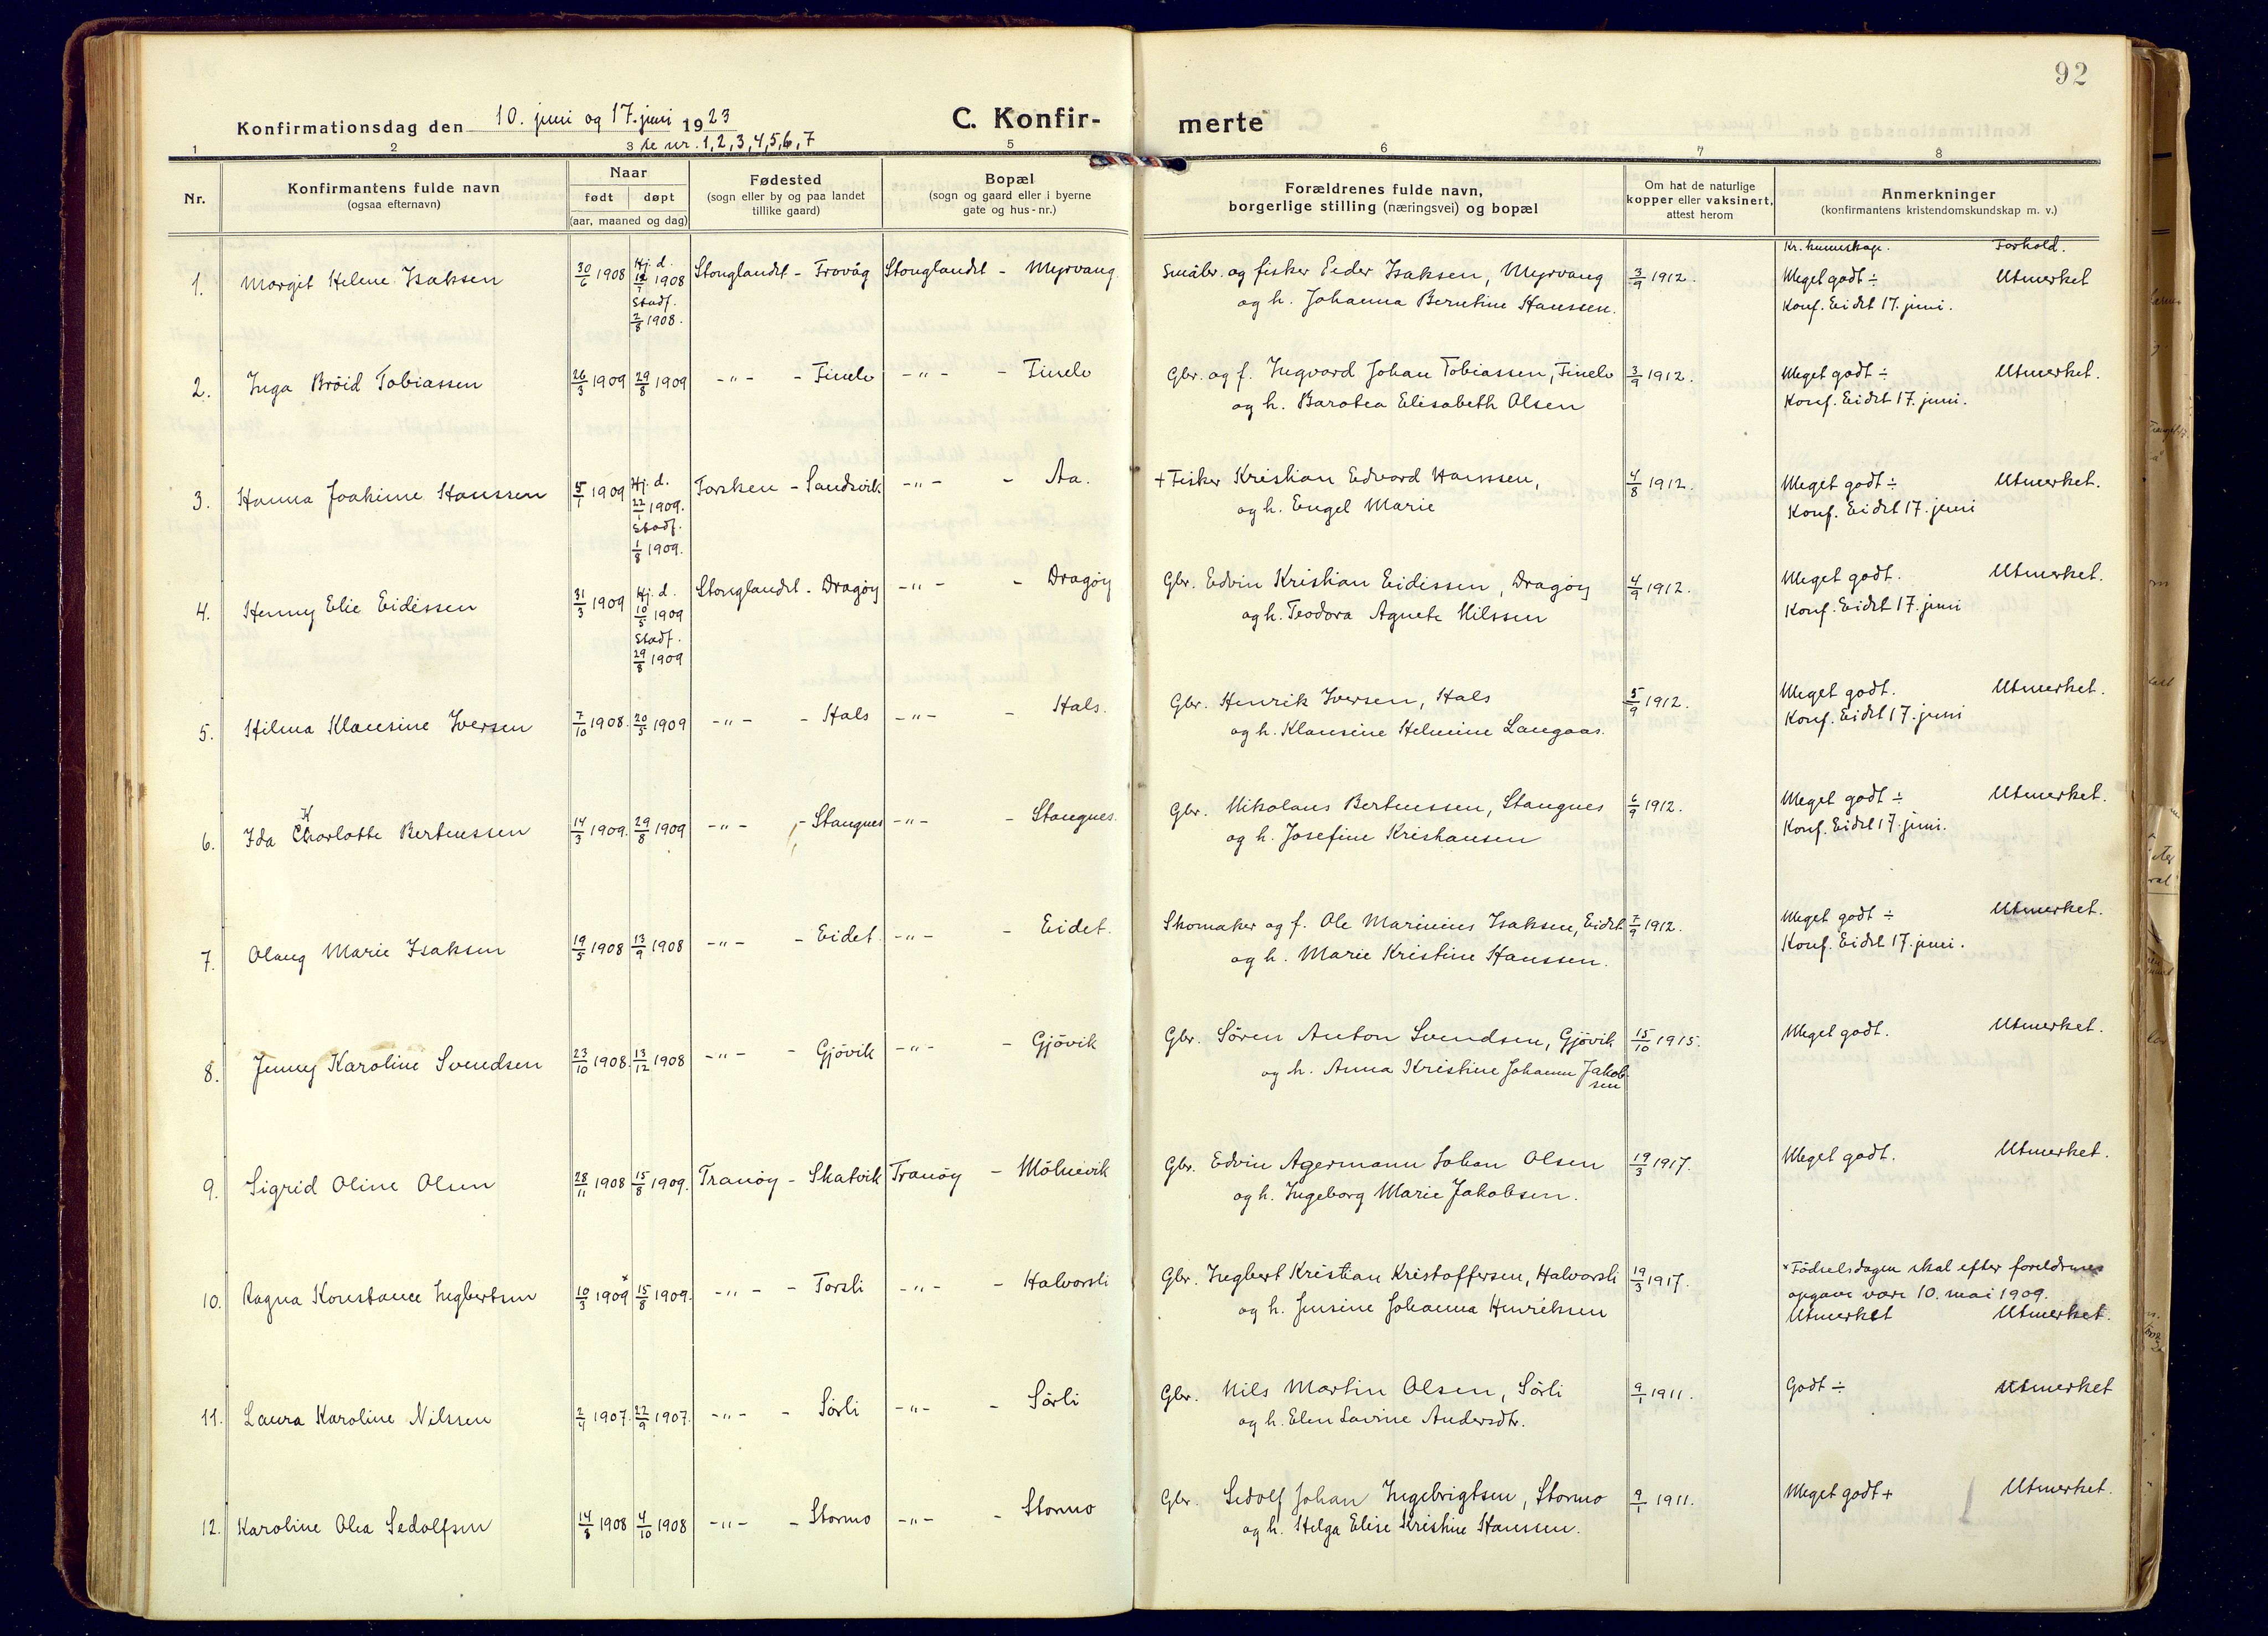 92
Konfirmationsdag den 10. juni og 17. juni 1923
C. Konfir-
merte
se nr. 1, 2, 3, 4, 5, 6, 7
1 2 3 5 6 7 8
Nr.
Konfirmantens fulde navn
(ogsaa efternavn)
Naar
født døpt
(aar, maaned og dag)
Fødested
(sogn eller by og paa landet
tillike gaard)
Bopæl
(sogn og gaard eller i byerne
gate og hus-nr.)
Forældrenes fulde navn,
borgerlige stilling (næringsvei) og bopæl
Om hat de naturlige
kopper eller vaksinert,
attest herom
Anmerkninger
(konfirmantens kristendomskundskap m. v.)
Kr. kunnskap. Forhold.
1. Margit Helene Isaksen 30/6 1908 Hj. d. 1908 Stonglandet - Frovåg Stonglandet - Myrvang. Småbr. og fisker Peder Isaksen, Myrvang 3/9 1912. Meget godt ÷ Utmerket
Stadf. og h. Johanna Berntine Hanssen. Konf. Eidet 17. juni.
2/8 1908.
2. Inga Bröid Tobiassen 26/3 1909 29/8 1909 -"- - Finelv -"- - Finelv Gbr. og f. Ingvard Johan Tobiassen, Finelv 3/9 1912. Meget godt ÷ Utmerket.
og h. Barotea Elisabeth Olsen Konf. Eidet 17. juni.
3. Hanna Joakime Hanssen 5/1 1909 Hj. d. Torsken - Sandsvik -"- - Aa. + Fisker Kristian Edvard Hanssen, 4/8 1912. Meget godt ÷ Utmerket.
22/1 1909. og h. Engel Marie Konf. Eidet 17. juni
Stadf.
1/8 1909.
4. Henny Elie Eidissen 31/3 1909 Hj. d. Stonglandet - Dragöy -"- - Dragöy Gbr. Edvin Kristian Eidissen, Dragöy 4/9 1912. Meget godt. Utmerket.
10/5 1909 og h. Teodora Agnete Nilssen Konf. Eidet 17. juni
Stadf.
29/8 1909
5. Hilma Klausine Iversen 7/10 1908. 20/5 1909 -"- - Hals -"- - Hals. Gbr. Henrik Iversen, Hals 5/9 1912. Meget godt. Utmerket.
og h. Klausine Helmine Langaas. Konf. Eidet 17. juni
K
6. Ida Charlotte Berteussen 14/3 1909. 29/8 1909 -"- - Stangnes -"- - Stangnes. Gbr. Nikolaus Berteussen, Stangnes 6/9 1912. Meget godt ÷ Utmerket.
og h. Josefine Kristiansen Konf. Eidet 17. juni.
7. Olaug Marie Isaksen 19/5 1908 13/9 1908 -"- - Eidet -"- - Eidet. Skomaker og f. Ole Marinius Isaksen, Eidet 7/9 1912. Meget godt ÷ Utmerket.
og h. Marie Kristine Hanssen. Konf. Eidet 17. juni.
8. Jenny Karoline Svendsen 23/10 1908. 13/12 1908 -"- - Gjövik -"- - Gjövik Gbr. Sören Anton Svendsen, Gjövik 15/10 1915. Meget godt. Utmerket.
og h. Anna Kristine Johanne Jakob-
sen
9. Sigrid Oline Olsen 28/11 1908 15/8 1909. Tranöy - Skatvik Tranöy - Mölnevik Gbr. Edvin Agermann Johan Olsen 19/3 1917. Meget godt. Utmerket.
og h. Ingeborg Marie Jakobsen.
10. Ragna Konstance Ingbertsen 10/3 1909 × 15/8 1909. -"- - Torsli -"- - Halvorsli Gbr. Ingbert Kristian Kristoffersen, Halvorsli 19/3 1917. × Födselsdagen skal efter foreldrenes
og h. Jensine Johanna Henriksen opgave være 10. mai 1909.
Utmerket Utmerket.
11. Laura Karoline Nilssen 2/4 1907. 22/9 1907. -"- - Sörli -"- - Sörli Gbr. Nils Martin Olsen, Sörli 9/1 1911. Godt ÷ Utmerket
og h. Elen Lovine Andersdtr.
12. Karoline Olea Sedolfsen 14/8 1908 4/10 1908 -"- - Stormo -"- - Stormo Gbr. Sedolf Johan Ingebrigtsen, Stormo 9/1 1911. Meget godt + Utmerket.
og h. Helga Elise Kristine Hanssen.